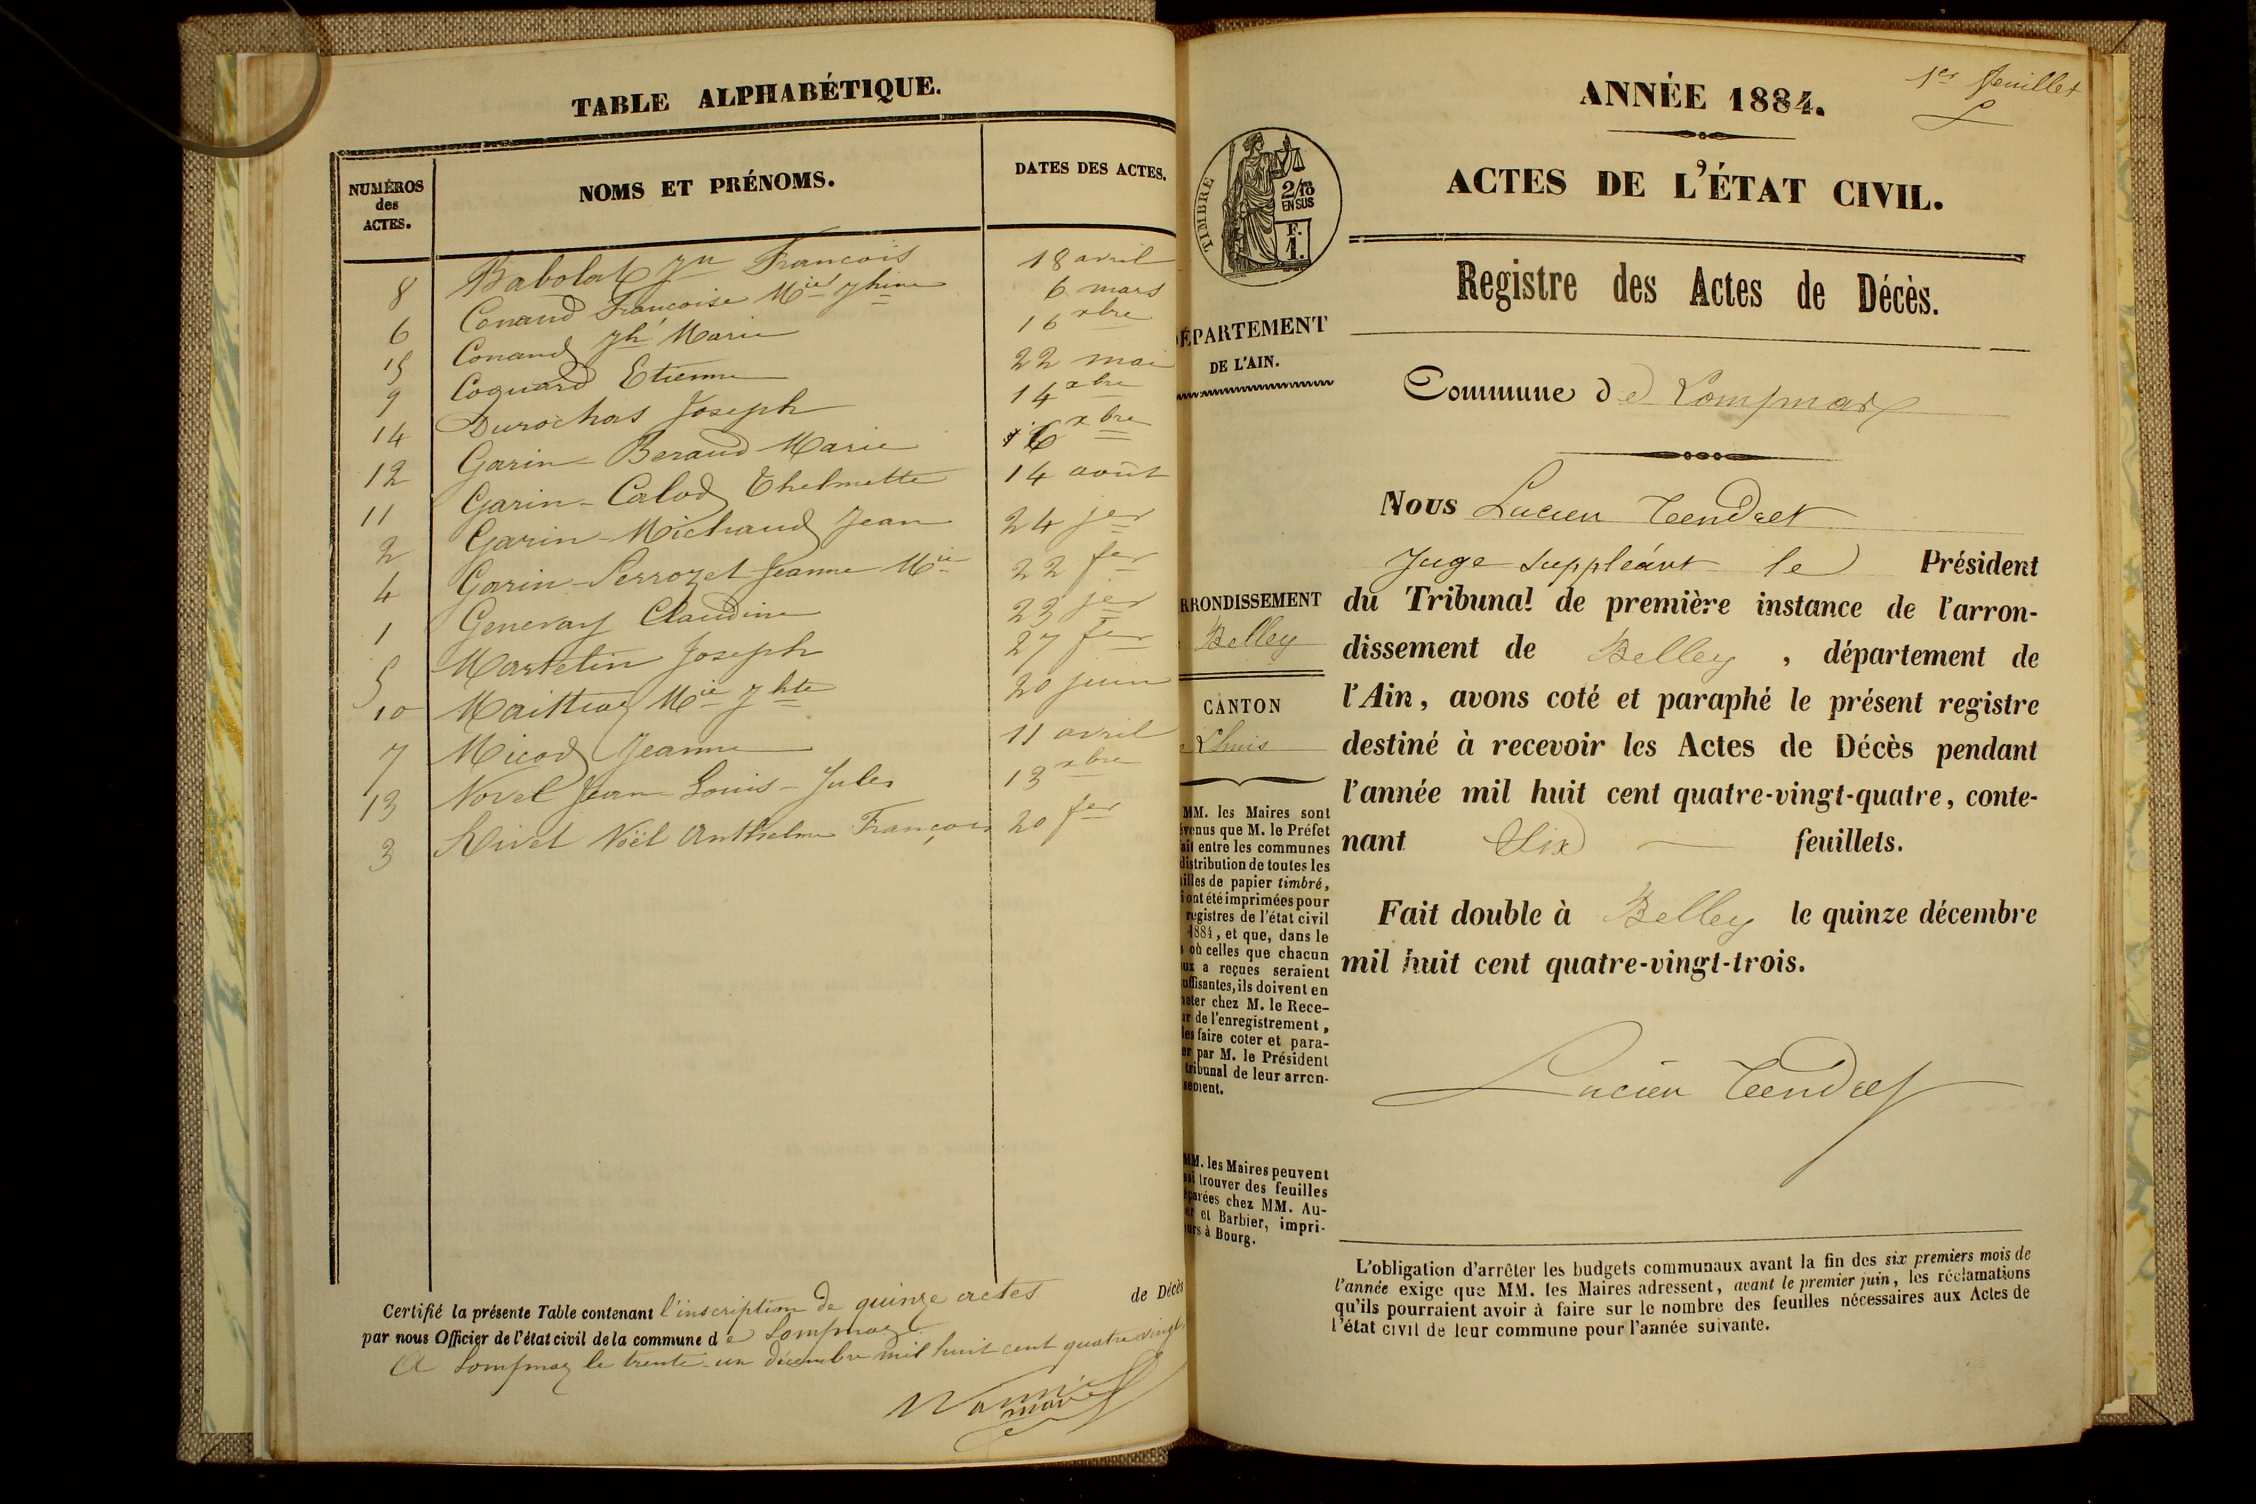 TABLE ALPHABÉTIQUE.
NUMÉROS des ACTES. NOMS ET PRÉNOMS. DATES DES ACTES.
8 Babolat Jn François 18 avril
6 Conand Françoise Mie Jhine 6 mars
15 Conand Jh Marie 16 xbre
9 Coquard Etienne 22 mai
14 Durochas Joseph 14 xbre
12 Garin-Beraud Marie 6 xbre
11 Garin-Calod Thelmette 14 août
2 Garin-Michaud Jean 24 jer
4 Garin-Perrozet Jeanne Mie 22 fer
1 Genevay Claudine 23 jer
5 Martelin Joseph 27 fer
10 Maittraz Mie Jhte 20 juin
7 Micod Jeanne 11 avril
13 Novel Jean Louis-Jules 13 xbre
3 Rivet Noël Anthelme François 20 fer
Certifié la présente Table contenant l'inscription de quinze actes de Décès
par nous Officier de l'état civil de la commune de Lompnaz
A Lompnaz le trente-un décembre mil huit cent quatre vingt
1er feuillet
ANNÉE 1884.
ACTES DE L'ÉTAT CIVIL.
TIMBRE
2/10
EN SUS
F.
1.
Registre des Actes de Décès.
DÉPARTEMENT
DE L'AIN.
Commune de Lompnaz
Nous Lucien Tendret
Juge suppléant le Président
du Tribunal de première instance de l'arron-
dissement de Belley, département de
l'Ain, avons coté et paraphé le présent registre
destiné à recevoir les Actes de Décès pendant
l'année mil huit cent quatre-vingt-quatre, conte-
nant Six feuillets.
Fait double à Belley le quinze décembre
mil huit cent quatre-vingt-trois.
Lucien Tendret
RRONDISSEMENT
Belley
CANTON
Lhuis
MM. les Maires sont
venus que M. le Préfet
ait entre les communes
distribution de toutes les
illes de papier timbré,
i ont été imprimées pour
registres de l'état civil
1884, et que, dans le
où celles que chacun
ux a reçues seraient
uffisantes, ils doivent en
heter chez M. le Rece-
ur de l'enregistrement,
les faire coter et para-
er par M. le Président
tribunal de leur arron-
sement.
MM. les Maires peuvent
ssi trouver des feuilles
éparées chez MM. Au-
er et Barbier, impri-
urs à Bourg.
L'obligation d'arrêter les budgets communaux avant la fin des six premiers mois de
l'année exige que MM. les Maires adressent, avant le premier juin, les réclamations
qu'ils pourraient avoir à faire sur le nombre des feuilles nécessaires aux Actes de
l'état civil de leur commune pour l'année suivante.